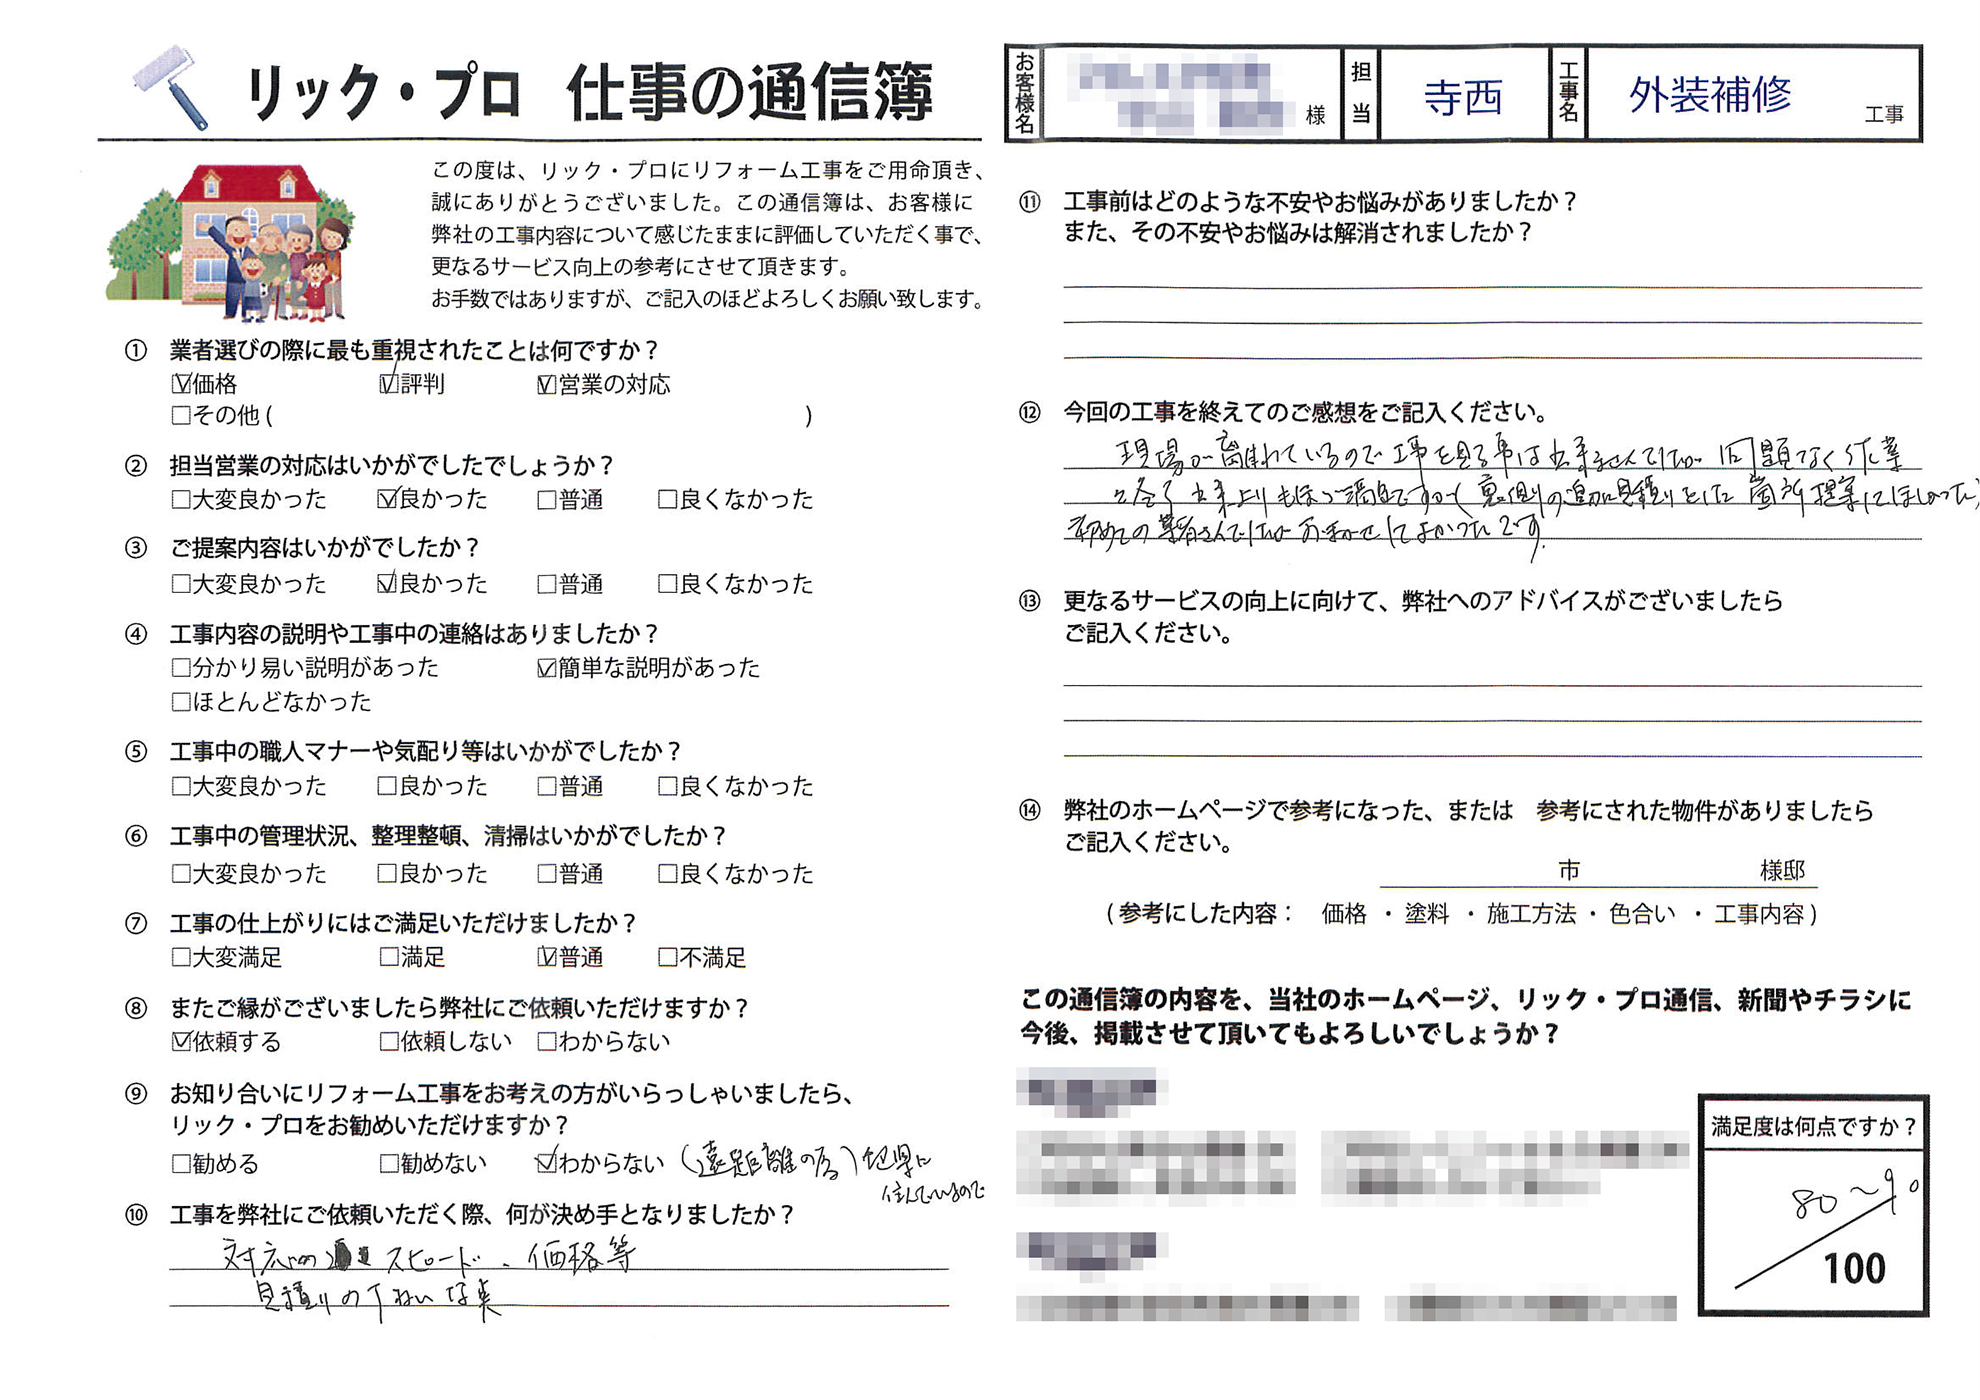 リック・プロ 仕事の通信簿
この度は、リック・プロにリフォーム工事をご用命頂き、
誠にありがとうございました。この通信簿は、お客様に
弊社の工事内容について感じたままに評価していただく事で、
更なるサービス向上の参考にさせて頂きます。
お手数ではありますが、ご記入のほどよろしくお願い致します。
① 業者選びの際に最も重視されたことは何ですか？
☑価格 ☑評判 ☑営業の対応
□その他 ( )
② 担当営業の対応はいかがでしたでしょうか？
□大変良かった ☑良かった □普通 □良くなかった
③ ご提案内容はいかがでしたか？
□大変良かった ☑良かった □普通 □良くなかった
④ 工事内容の説明や工事中の連絡はありましたか？
□分かり易い説明があった ☑簡単な説明があった
□ほとんどなかった
⑤ 工事中の職人マナーや気配り等はいかがでしたか？
□大変良かった □良かった □普通 □良くなかった
⑥ 工事中の管理状況、整理整頓、清掃はいかがでしたか？
□大変良かった □良かった □普通 □良くなかった
⑦ 工事の仕上がりにはご満足いただけましたか？
□大変満足 □満足 ☑普通 □不満足
⑧ またご縁がございましたら弊社にご依頼いただけますか？
☑依頼する □依頼しない □わからない
⑨ お知り合いにリフォーム工事をお考えの方がいらっしゃいましたら、
リック・プロをお勧めいただけますか？
□勧める □勧めない ☑わからない (遠距離の為) 他県に
住んでいるので
⑩ 工事を弊社にご依頼いただく際、何が決め手となりましたか？
対応の スピード、価格等
見積りの丁ねいな事
お客様名 様 担当 寺西 工事名 外装補修 工事
⑪ 工事前はどのような不安やお悩みがありましたか？
また、その不安やお悩みは解消されましたか？
⑫ 今回の工事を終えてのご感想をご記入ください。
現場が離れているので工事を見る事は出来ませんでしたが 問題なく作業
完了 出来上りもほぼ満足ですが(裏側の追加見積りをした箇所提案してほしかった)
初めての業者さんでしたが おまかせしてよかったです。
⑬ 更なるサービスの向上に向けて、弊社へのアドバイスがございましたら
ご記入ください。
⑭ 弊社のホームページで参考になった、または 参考にされた物件がありましたら
ご記入ください。
市 様邸
( 参考にした内容： 価格 ・ 塗料 ・ 施工方法 ・ 色合い ・ 工事内容 )
この通信簿の内容を、当社のホームページ、リック・プロ通信、新聞やチラシに
今後、掲載させて頂いてもよろしいでしょうか？
満足度は何点ですか？
80〜90
100